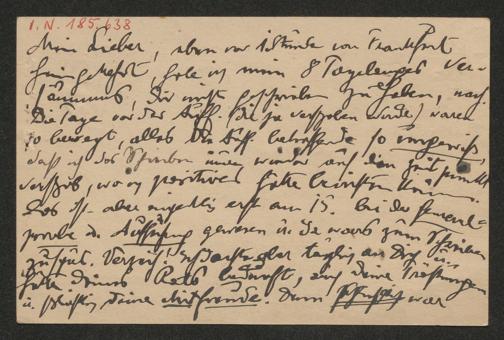 I.N. 185.638
Mein Lieber, eben vor 1 Stunde von Frankfurt
heimgekehrt, hole ich mein 8 Tagelanges Ver-
säumnis, Dir nicht geschrieben zu haben, nach.
Die Tage vor der Auff. (die ja verschoben wurde) waren
so bewegt, alles die Auff betreffende so ungewiss,
dass ich das Schreiben immer wieder auf den Zeitpunkt
verschob, wo ich positives hätte berichten können.
Das ist aber eigentlich erst am 15. bei der General-
probe u. Aufführung gewesen u. da war's zum Schreiben
zu spät. Verzeih! Ich dachte aber täglich an Dich u.
hätte Deines Rats bedurft, auch Deine Tröstungen
u. schließlich Deine Mitfreude. Denn war